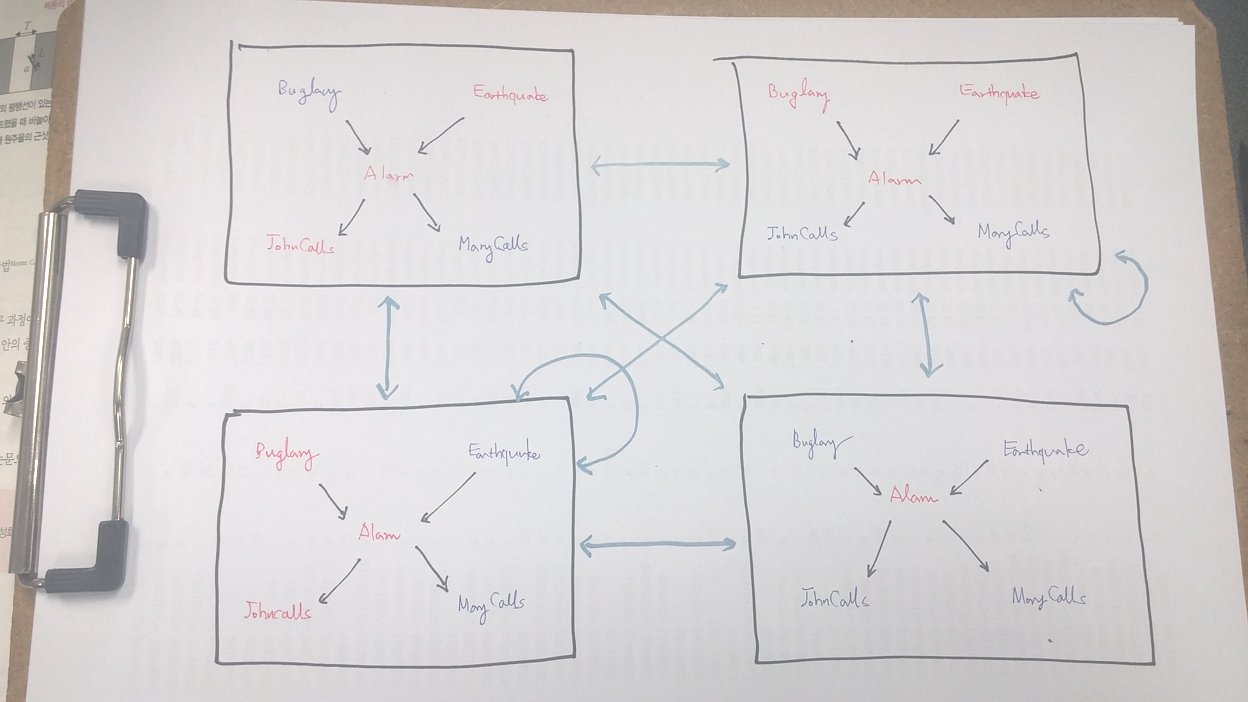 Buglary Earthquake
Alarm
JohnCalls MaryCalls
Buglary Earthquake
Alarm
JohnCalls MaryCalls
Buglary Earthquake
Alarm
Johncalls MaryCalls
Buglary Earthquake
Alarm
JohnCalls MaryCalls